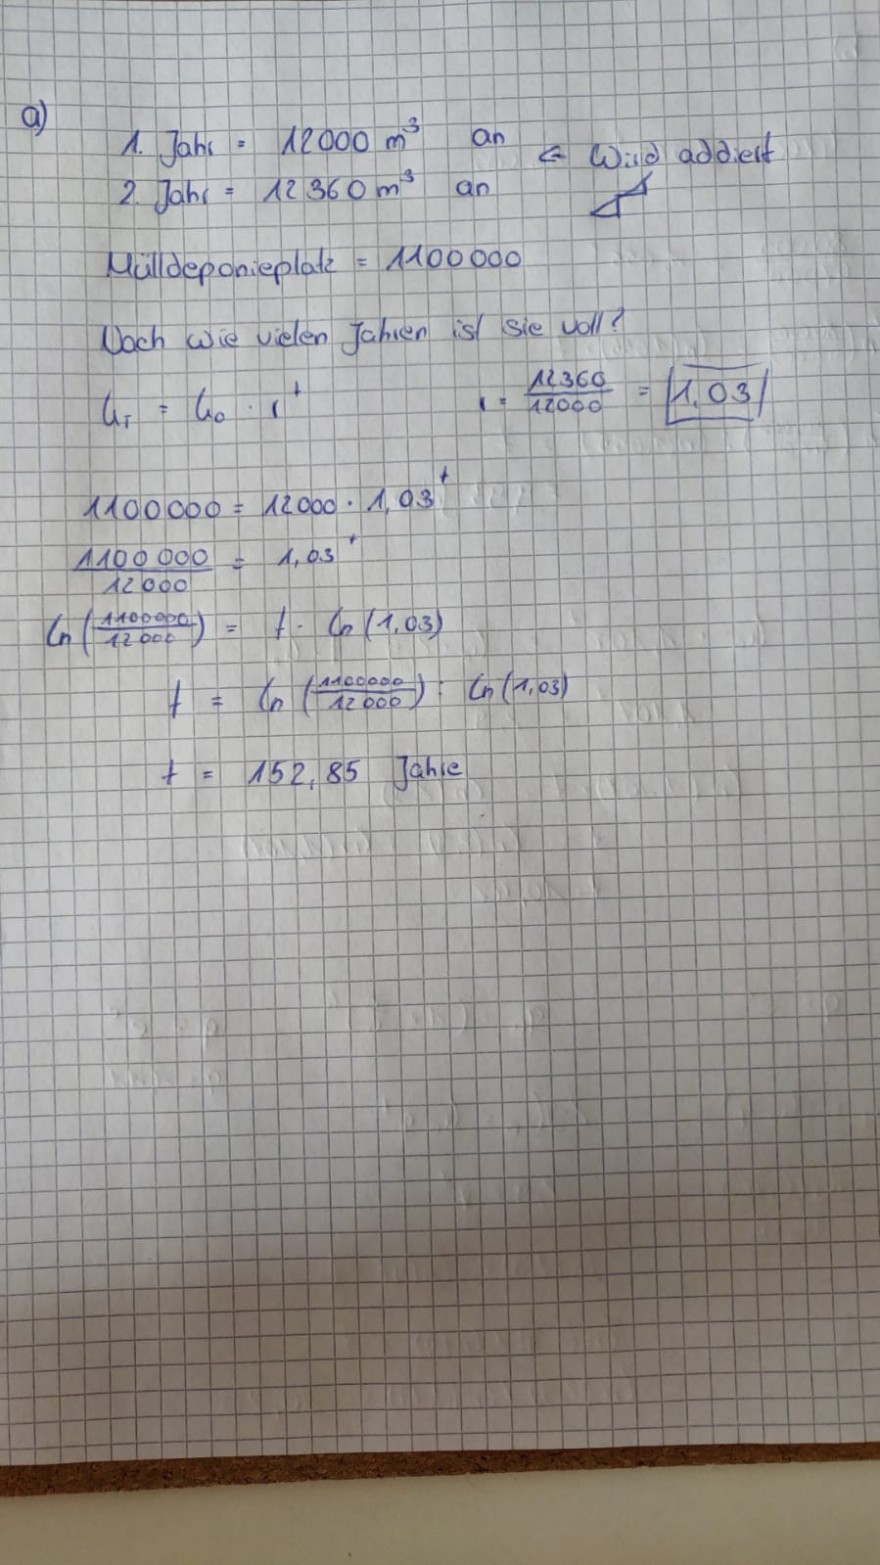 a)
1. Jahr = 12000 m³ an
← Wird addiert
2. Jahr = 12360 m³ an
Mülldeponieplatz = 1100000
Nach wie vielen Jahren ist sie voll?
G_T = G_0 · r^t r = 12360/12000 = 1,03
1100000 = 12000 · 1,03^t
1100000/12000 = 1,03^t
ln(1100000/12000) = t · ln(1,03)
t = ln(1100000/12000) : ln(1,03)
t = 152,85 Jahre